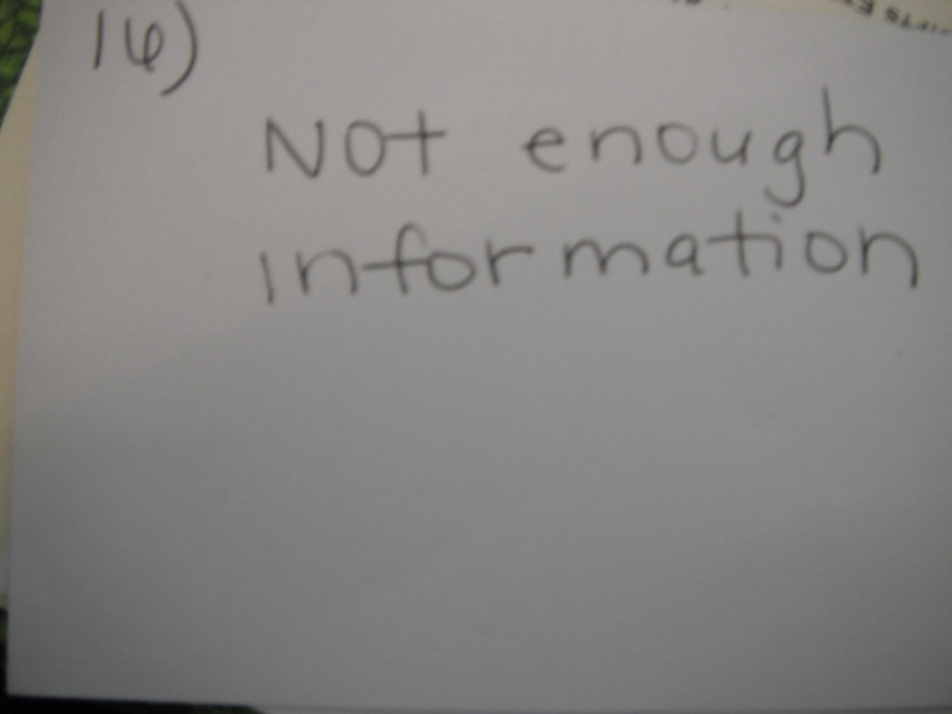 16)
Not enough
information